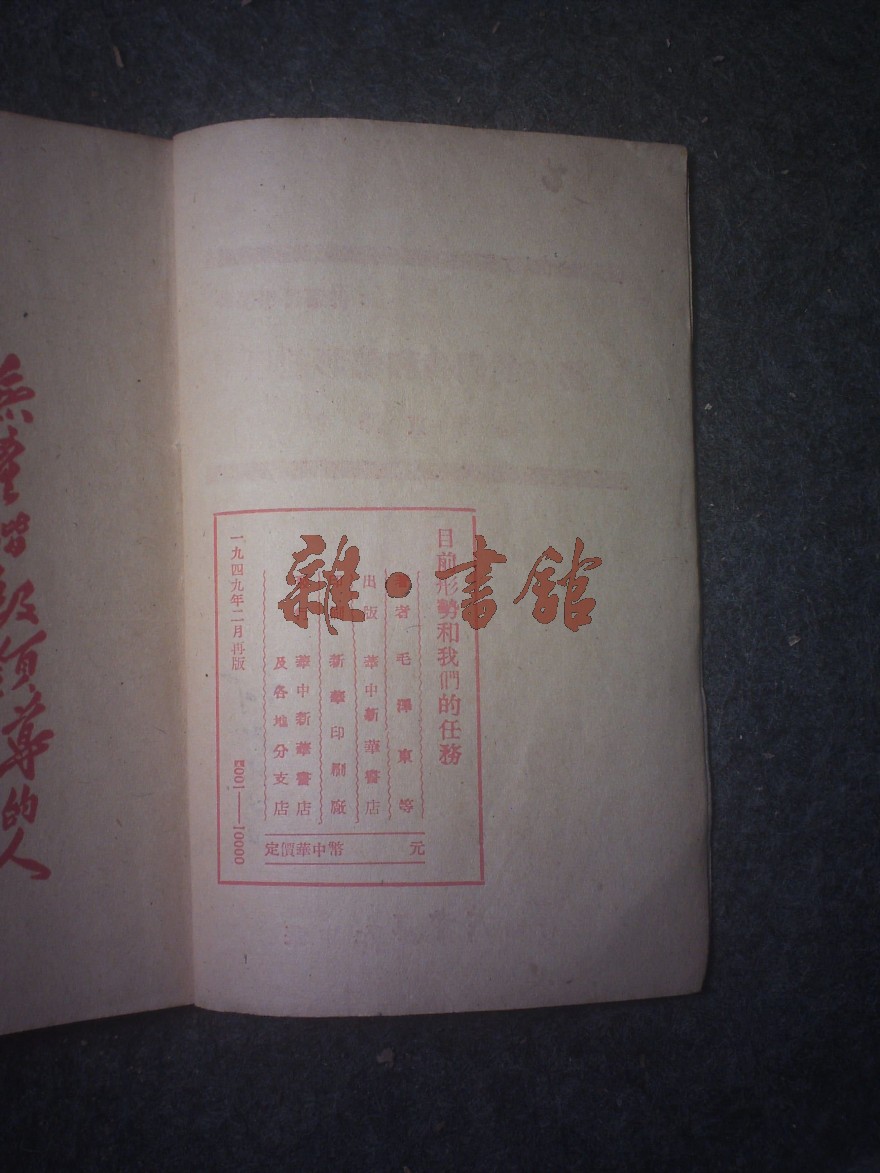 目前形勢和我們的任務
者 毛澤東等
出版 華中新華書店
新華印刷廠
華中新華書店
及各地分支店
定價華中幣 元
一九四九年二月再版
001——10000
無產階級領導的人
雜·書館